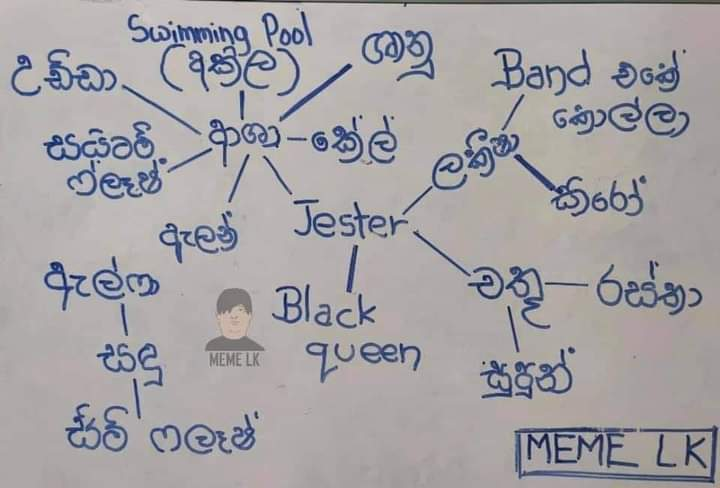 Swimming Pool
(අක්ල)
උඩ්ඩා
ශානු
Band එකේ
කොල්ලා
සයිටම්
ෆ්ලෑෂ්
ආශා
කේල්
ලකීෂා
කීරෝ
ඇලන්
Jester
ඇල්ෆා
Black
queen
චතූ
රස්තා
සඳු
සුපුන්
සිටි ෆලෑෂ්
MEME LK
MEME LK